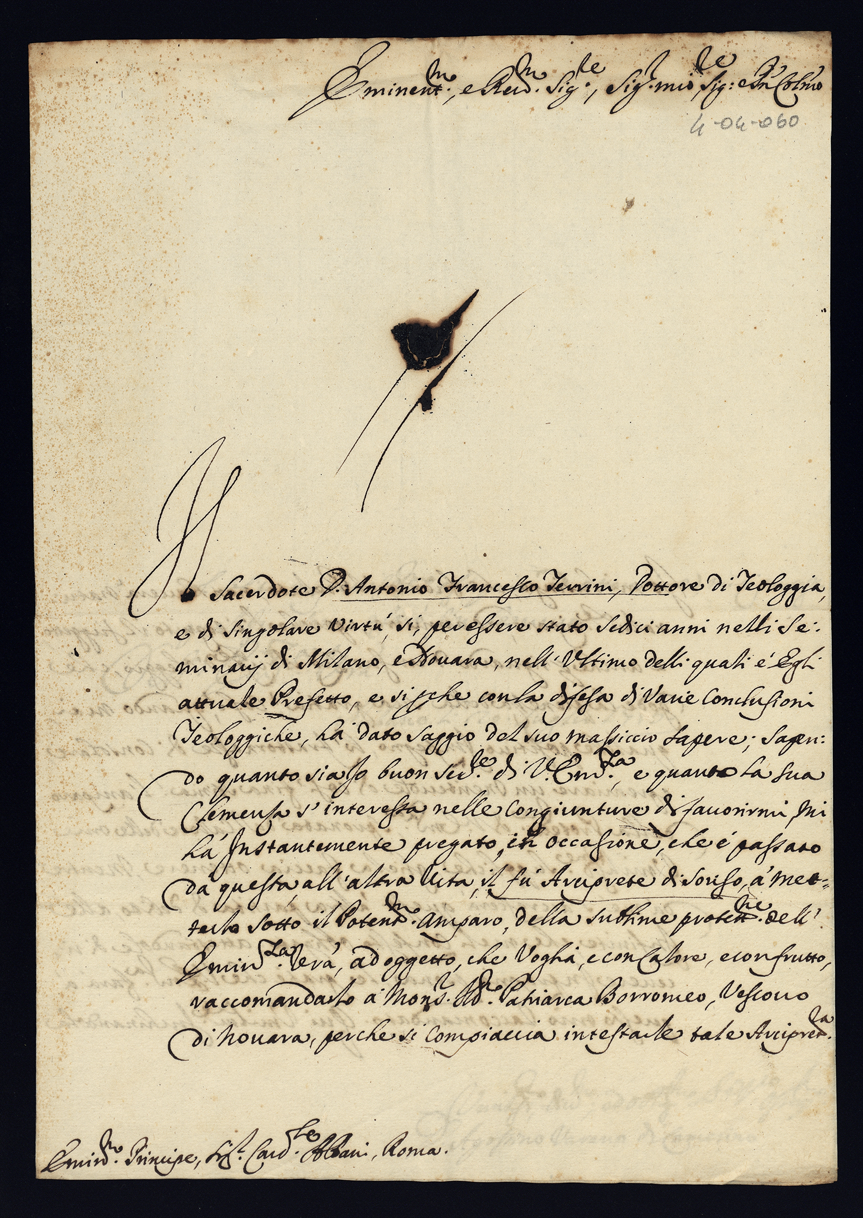 Eminent.mo, e Reud.mo Sig.re, Sig.r mio, Sig: e Pn Colmo
4-04-060
Il Sacerdote D. Antonio Francesco Terrini, Dottore di Teologgia,
e di singolare Virtú, si, per essere stato sedici anni nelli Se:
minarij di Milano, e Nouara, nell'Vltimo delli quali é Egli
attuale Prefetto, e si che con la difesa di Varie Conclusioni
Teologgiche, há dato saggio del suo massiccio sapere; sapen:
do quanto sia Io buon Ser.re di V. Em.za, e quanto la sua
Clemenza s'interessa nelle Congiunture di fauorirmi, Mi
há Instantemente pregato, in occasione, che é passato
dá questa, all'altra Vita, il fú Arciprete di Souiso, á met-
terlo sotto il Potent.mo Amparo, della sublime protett.ne dell'
Emin.za Vr̃a, ad oggetto, che Voglia, e con Calore, e con frutto,
raccomandarlo á Mons.r Ill.mo Patriarca Borromeo, Vescouo
di Nouara, perche si Compiaccia intestarle tale Arcipret.ra
Emin.mo Principe, Sig.r Card.le Albani, Roma.